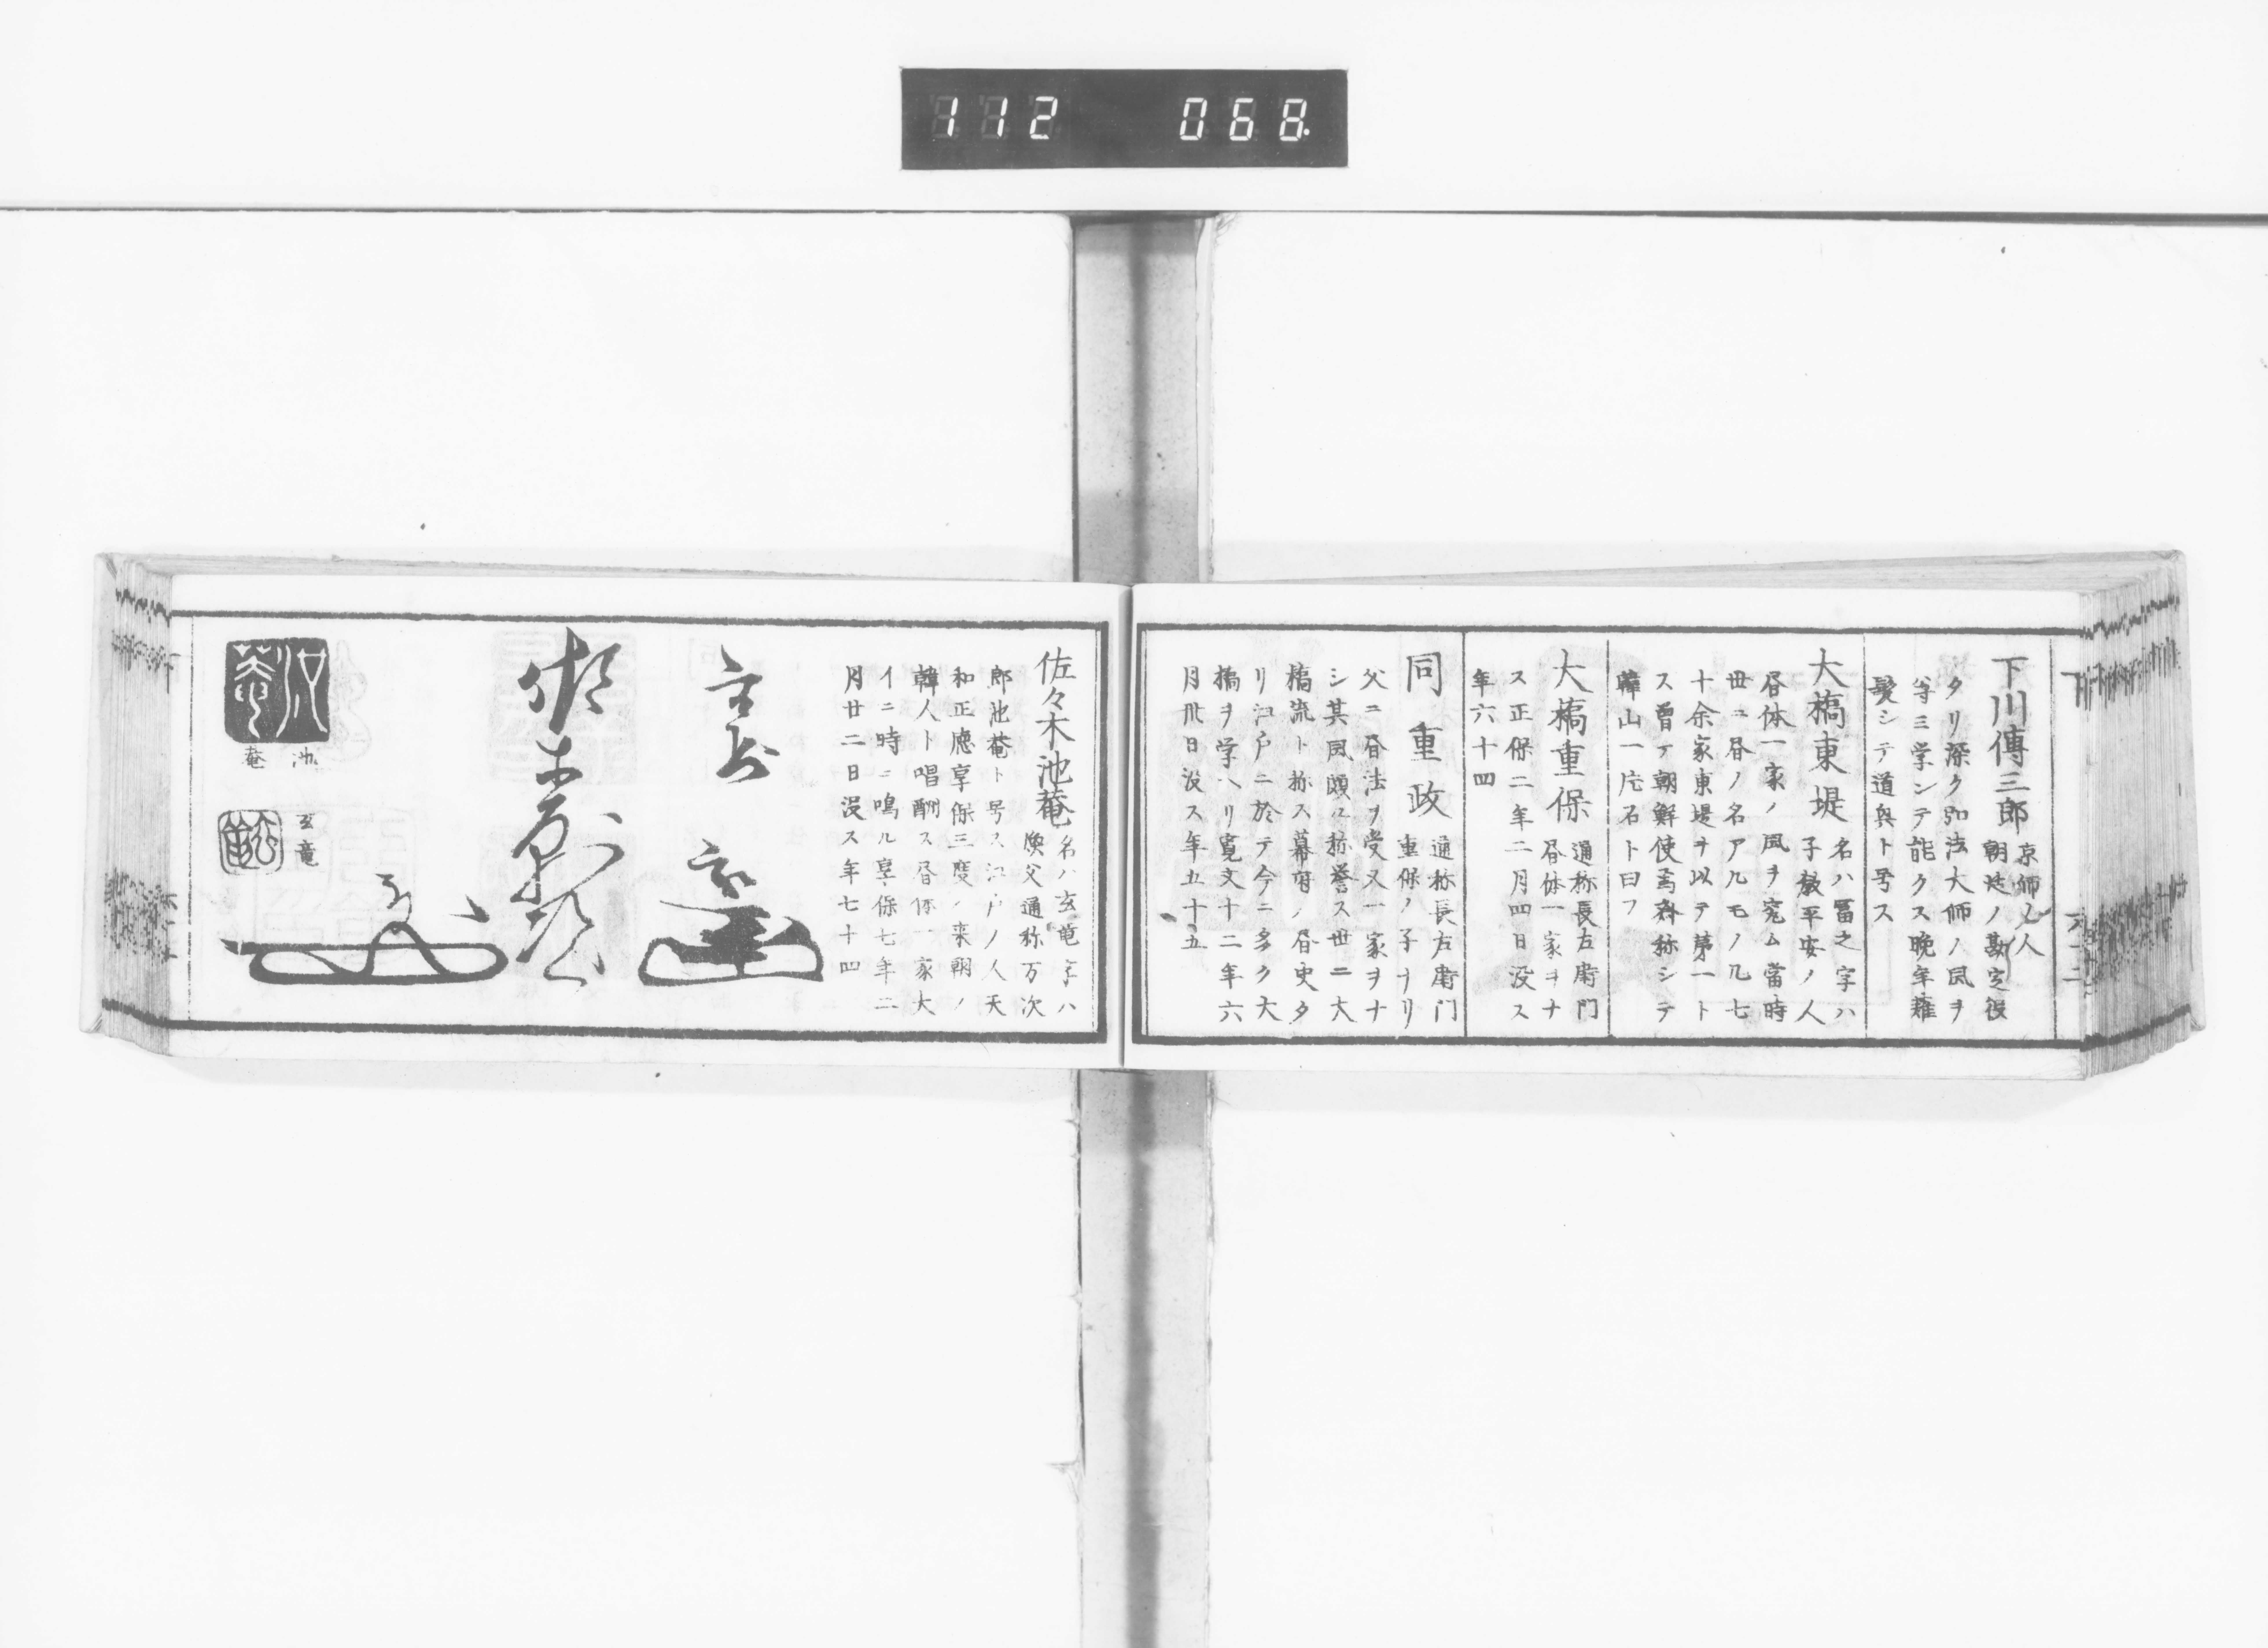 112 068.
下川傳三郎
京師ノ人
朝廷ノ勘定役
タリ深ク弘法大師ノ風ヲ
学ンテ能クス晩年薙
髪シテ道與ト号ス
大橋東堤
名ハ冨之字ハ
子敬平安ノ人
昼体一家ノ風ヲ究ム當時
世ニ昼ノ名アルモノ凡七
十余家東堤ヲ以テ第一ト
ス曽テ朝鮮使寫斉称シテ
韓山一片石ト曰フ
大橋重保
通称長左衛門
昼体一家ヲナ
ス正保二年二月四日没ス
年六十四
同重政
通称長左衛門
重保ノ子ナリ
父ニ昼法ヲ受又一家ヲナ
シ其風頗ル称誉ス世ニ大
橋流ト称ス幕府ノ昼吏タ
リ江戸ニ於テ今ニ多ク大
橋ヲ学ヘリ寛文十二年六
月卅日没ス年五十五
佐々木池菴
名ハ玄竜字ハ
煥父通称万次
郎池菴ト号ス江戸ノ人天
和正應享保三度ノ来朝ノ
韓人ト唱酬ス昼体一家大
イニ時ニ鳴ル享保七年二
月廿二日没ス年七十四
池菴
玄竜